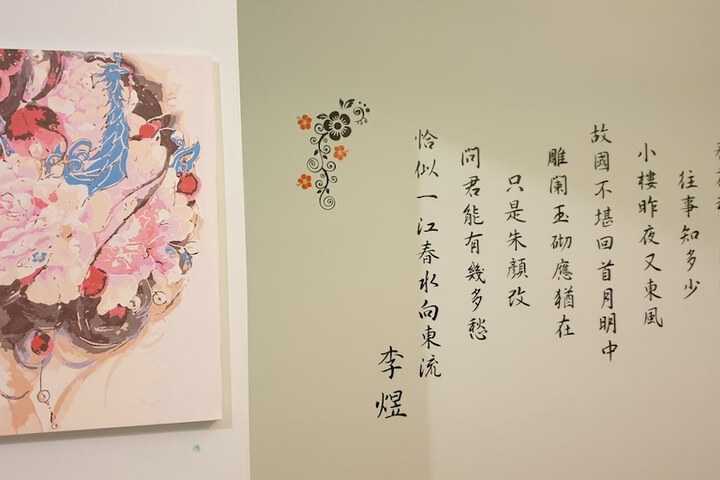 往事知多少
小樓昨夜又東風
故國不堪回首月明中
雕闌玉砌應猶在
只是朱顏改
問君能有幾多愁
恰似一江春水向東流
李煜